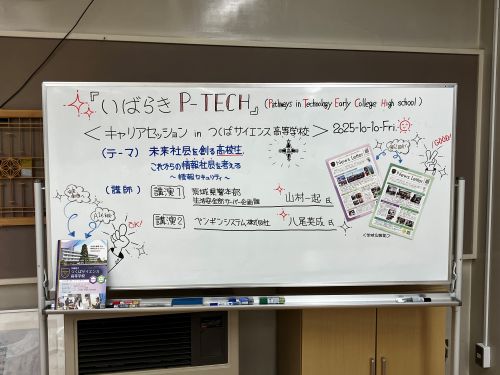 『いばらき P-TECH』(Pathways in Technology Early College High school)
<キャリアセッション in つくばサイエンス高等学校> 2025-10-10-Fri.
(テーマ) 未来社会を創る高校生
これからの情報社会を考える
~情報セキュリティ~
(講師) 講演1 茨城県警本部
生活安全部サイバー企画課 山村一起 氏
講演2 ペンギンシステム株式会社 八尾美成 氏
OK!
GOOD!
News Letter
News Letter
つくばサイエンス
高等学校